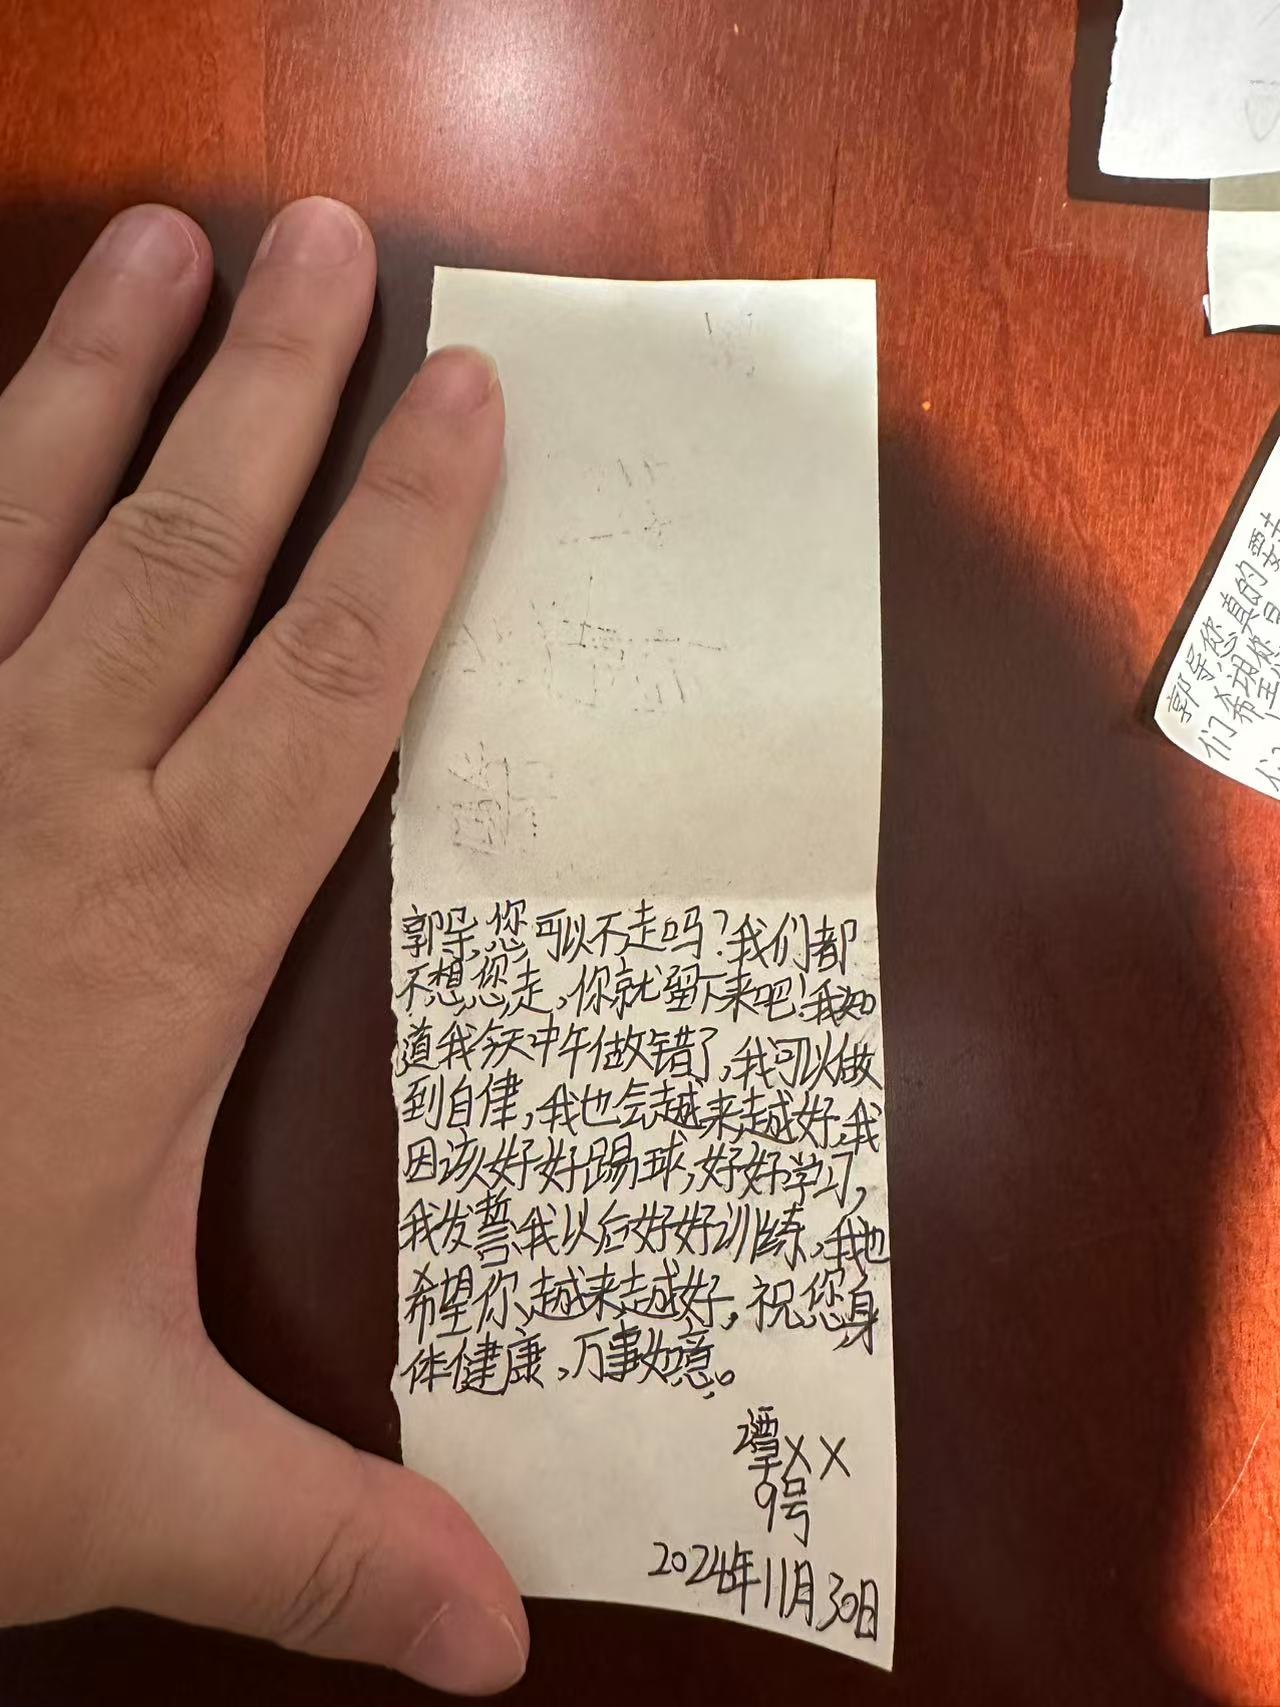 郭导,您可以不走吗?我们都
不想您走,你就留下来吧!我知
道我今天中午做错了,我可以做
到自律,我也会越来越好,我
因该好好踢球,好好学习,
我发誓,我以后好好训练,我也
希望你越来越好,祝您身
体健康,万事如意。
谭XX
9号
2024年11月30日
郭导您真的要
们希望您
们